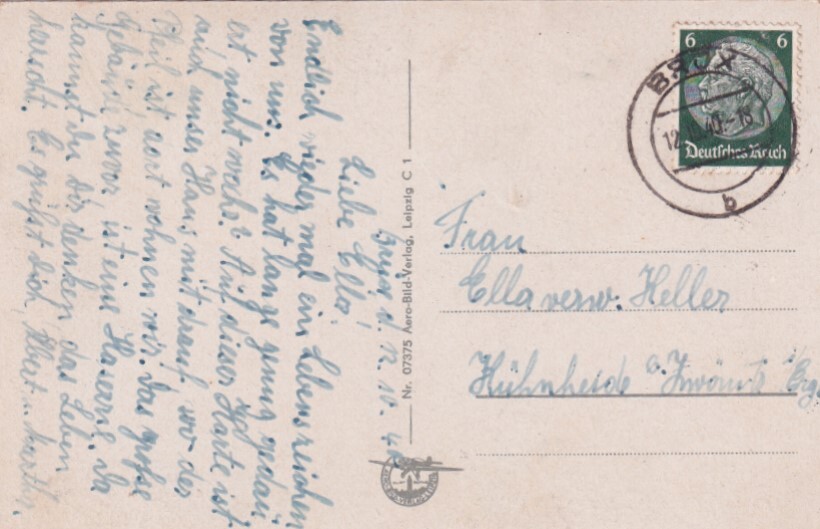 Brüx d. 12.10.40
Liebe Ella!
Endlich wieder mal ein Lebenszeichen
von uns. Es hat lange genug gedau
ert nicht wahr? Auf dieser Karte ist
auch unser Haus mit drauf wo der
Pfeil ist dort wohnen wir. Das große
Gebäude zuvor ist eine Kaserne. Da
kannst du dir denken das Leben
herscht. Es grüßt dich, Albert u. Martha.
Nr. 07375 Aero-Bild-Verlag, Leipzig C 1
6 6
Deutsches Reich
BRÜX
12.10.40.-18
b
Frau
Ella verw. Keller
Kühnheide b. Zwönitz i/Erg.